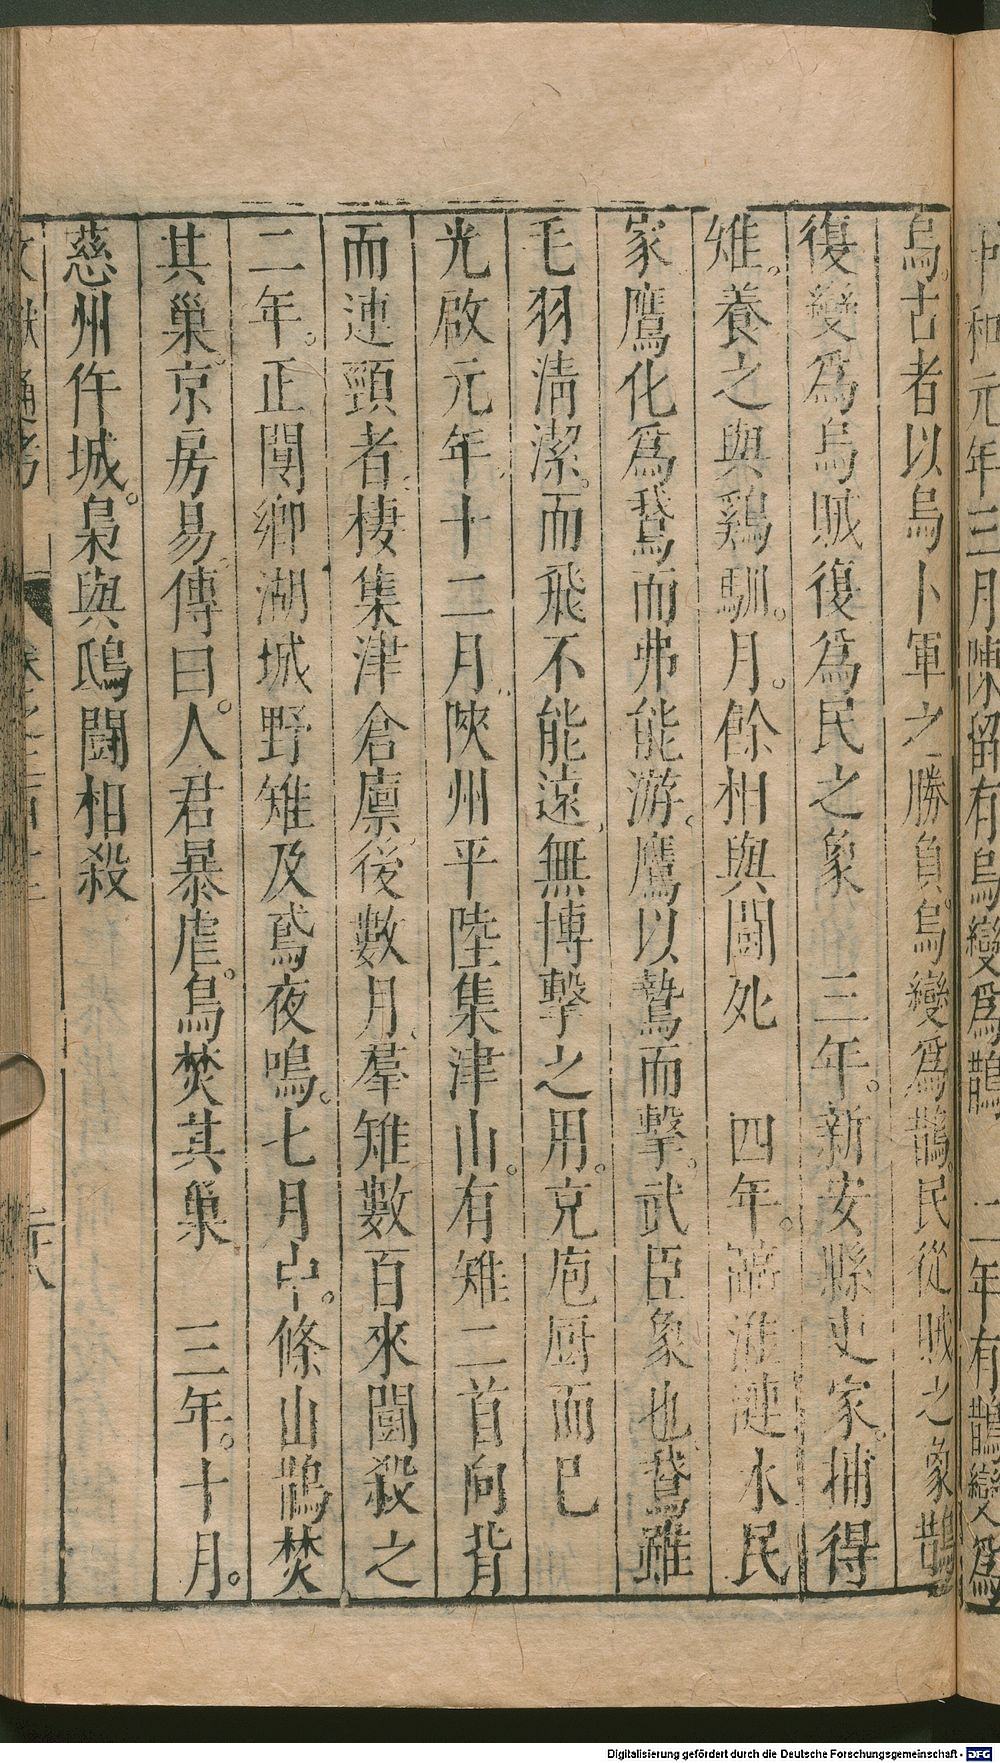 中和元年三月陳留有烏變爲鵲　二年有鵲變爲
烏。古者以烏卜軍之勝負。烏變爲鵲。民從賊之象鵲
復變爲烏賊復爲民之象　三年。新安縣吏家。捕得
雉。養之與鷄馴。月。餘相與鬪死　四年。臨淮漣水民
家鷹化爲鵞而弗能游。鷹以鷙而擊。武臣象也鵞雖
毛羽淸潔。而飛不能遠。無博擊之用。充庖厨而已
光啟元年十二月陜州平陸集津山。有雉二首向背
而連頸者。棲集津倉廪。後數月。羣雉數百來鬪殺之
二年。正月閿鄉湖城野雉及鳶夜鳴。七月中。條山鵲焚
其巢。京房易傳曰。人君暴虐。鳥焚其巢　三年。十月。
慈州仵城。梟與鴟鬪相殺
文獻通考
Digitalisierung gefördert durch die Deutsche Forschungsgemeinschaft - DFG